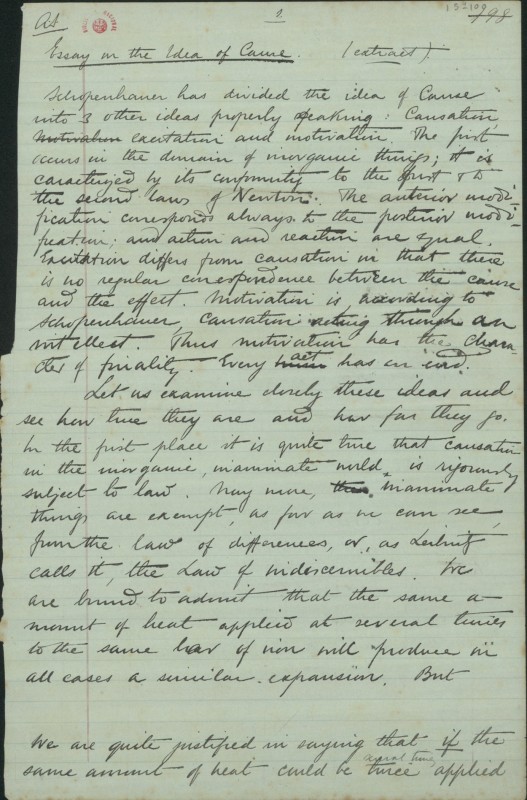 At 1. 132109 798
Essay on the Idea of Cause. (extract).
Schopenhauer has divided the idea of Cause
into 3 other ideas properly speaking: Causation,
motivation excitation and motivation. The first
occurs in the domain of inorganic things; it is
caracterized by its conformity to the first & to
the second laws of Newton. The anterior modi-
fication corresponds always to the posterior modi-
fication; and action and reaction are equal.
Excitation differs from causation in that there
is no regular correspondence between the cause
and the effect. Motivation is according to
Schopenhauer, causation acting through an
intellect. Thus motivation has the charac-
cter of finality. Every act has an end.
Let us examine closely these ideas and
see how true they are and how far they go.
In the first place it is quite true that causation
in the inorganic, inanimate world, is rigorously
subject to law. Nay more, inanimate
things are exempt, as far as we can see,
from the law of differences, or, as Leibnitz
calls it, the Law of indiscernibles. We
are bound to admit that the same a-
mount of heat applied at several times
to the same bar of iron will produce in
all cases a similar expansion. But
We are quite justified in saying that if the
several times
same amount of heat could be twice applied